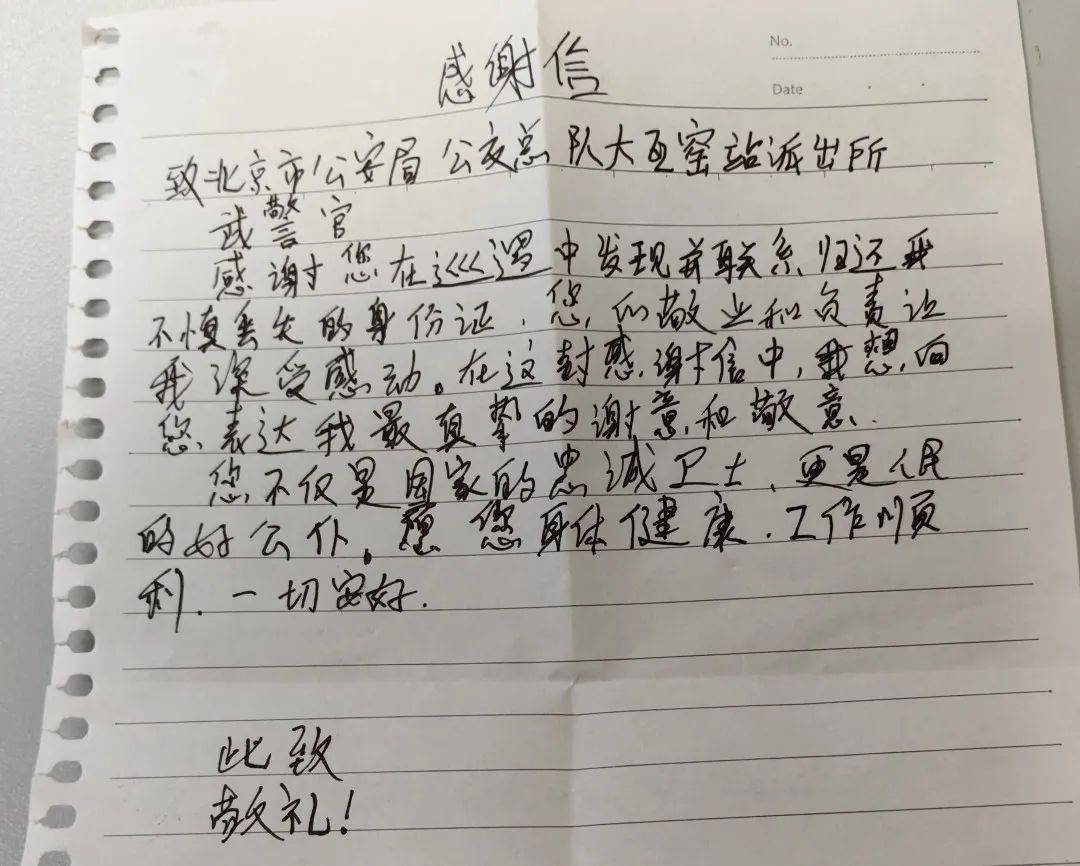 No.
Date
感谢信
致北京市公安局公交总队大瓦窑站派出所
武警官
感谢您在巡逻中发现并联系归还我
不慎丢失的身份证，您们的敬业和负责让
我深受感动。在这封感谢信中，我想向
您表达我最真挚的谢意和敬意.
您不仅是国家的忠诚卫士，更是人民
的好公仆。愿您身体健康，工作顺
利，一切安好.
此致
敬礼！